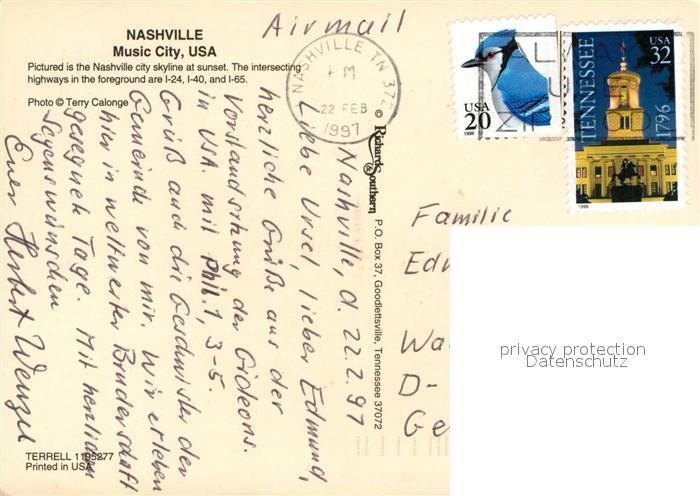 Airmail
NASHVILLE
Music City, USA
Pictured is the Nashville city skyline at sunset. The intersecting
highways in the foreground are I-24, I-40, and I-65.
Photo © Terry Calonge
NASHVILLE TN 372
PM
22 FEB
1997
USA
20
1996
TENNESSEE
USA
32
1796
1996
© Richard Southern P.O. Box 37, Goodlettsville, Tennessee 37072
Nashville, d. 22.2.97
Liebe Ursel, lieber Edmund,
herzliche Grüße aus der
Vorstandsitzung der Gideons.
in USA. mit Phil. 1, 3-5.
Grüß auch die Geschwister der
Gemeinde von mir. Wir erleben
hier in weltweiter Bruderschaft
gesegnete Tage. Mit herzlichen
Segenswünschen
Euer Herbert Wenzel
Familie
Ed
Wa
D-
Ge
privacy protection
Datenschutz
TERRELL 1195277
Printed in USA